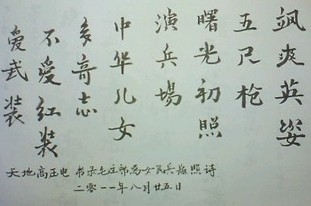 飒爽英姿
五尺枪
曙光初照
演兵場
中华儿女
多奇志
不爱红装
爱武装
天地高 电 书录毛主 为女民兵 照诗
二〇一一年八月廿五日